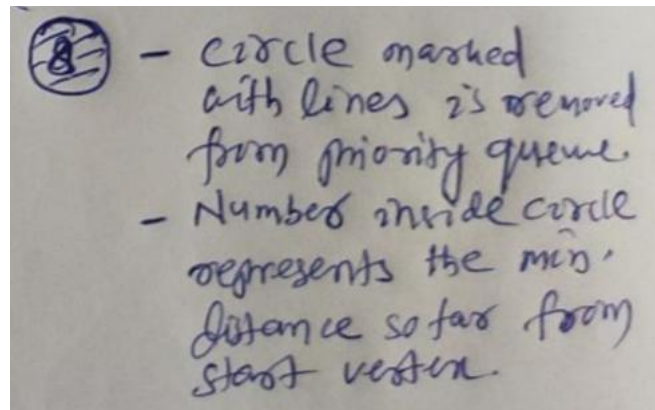 8 - circle marked
with lines is removed
from priority queue.
- Number inside circle
represents the min.
distance so far from
start vertex.